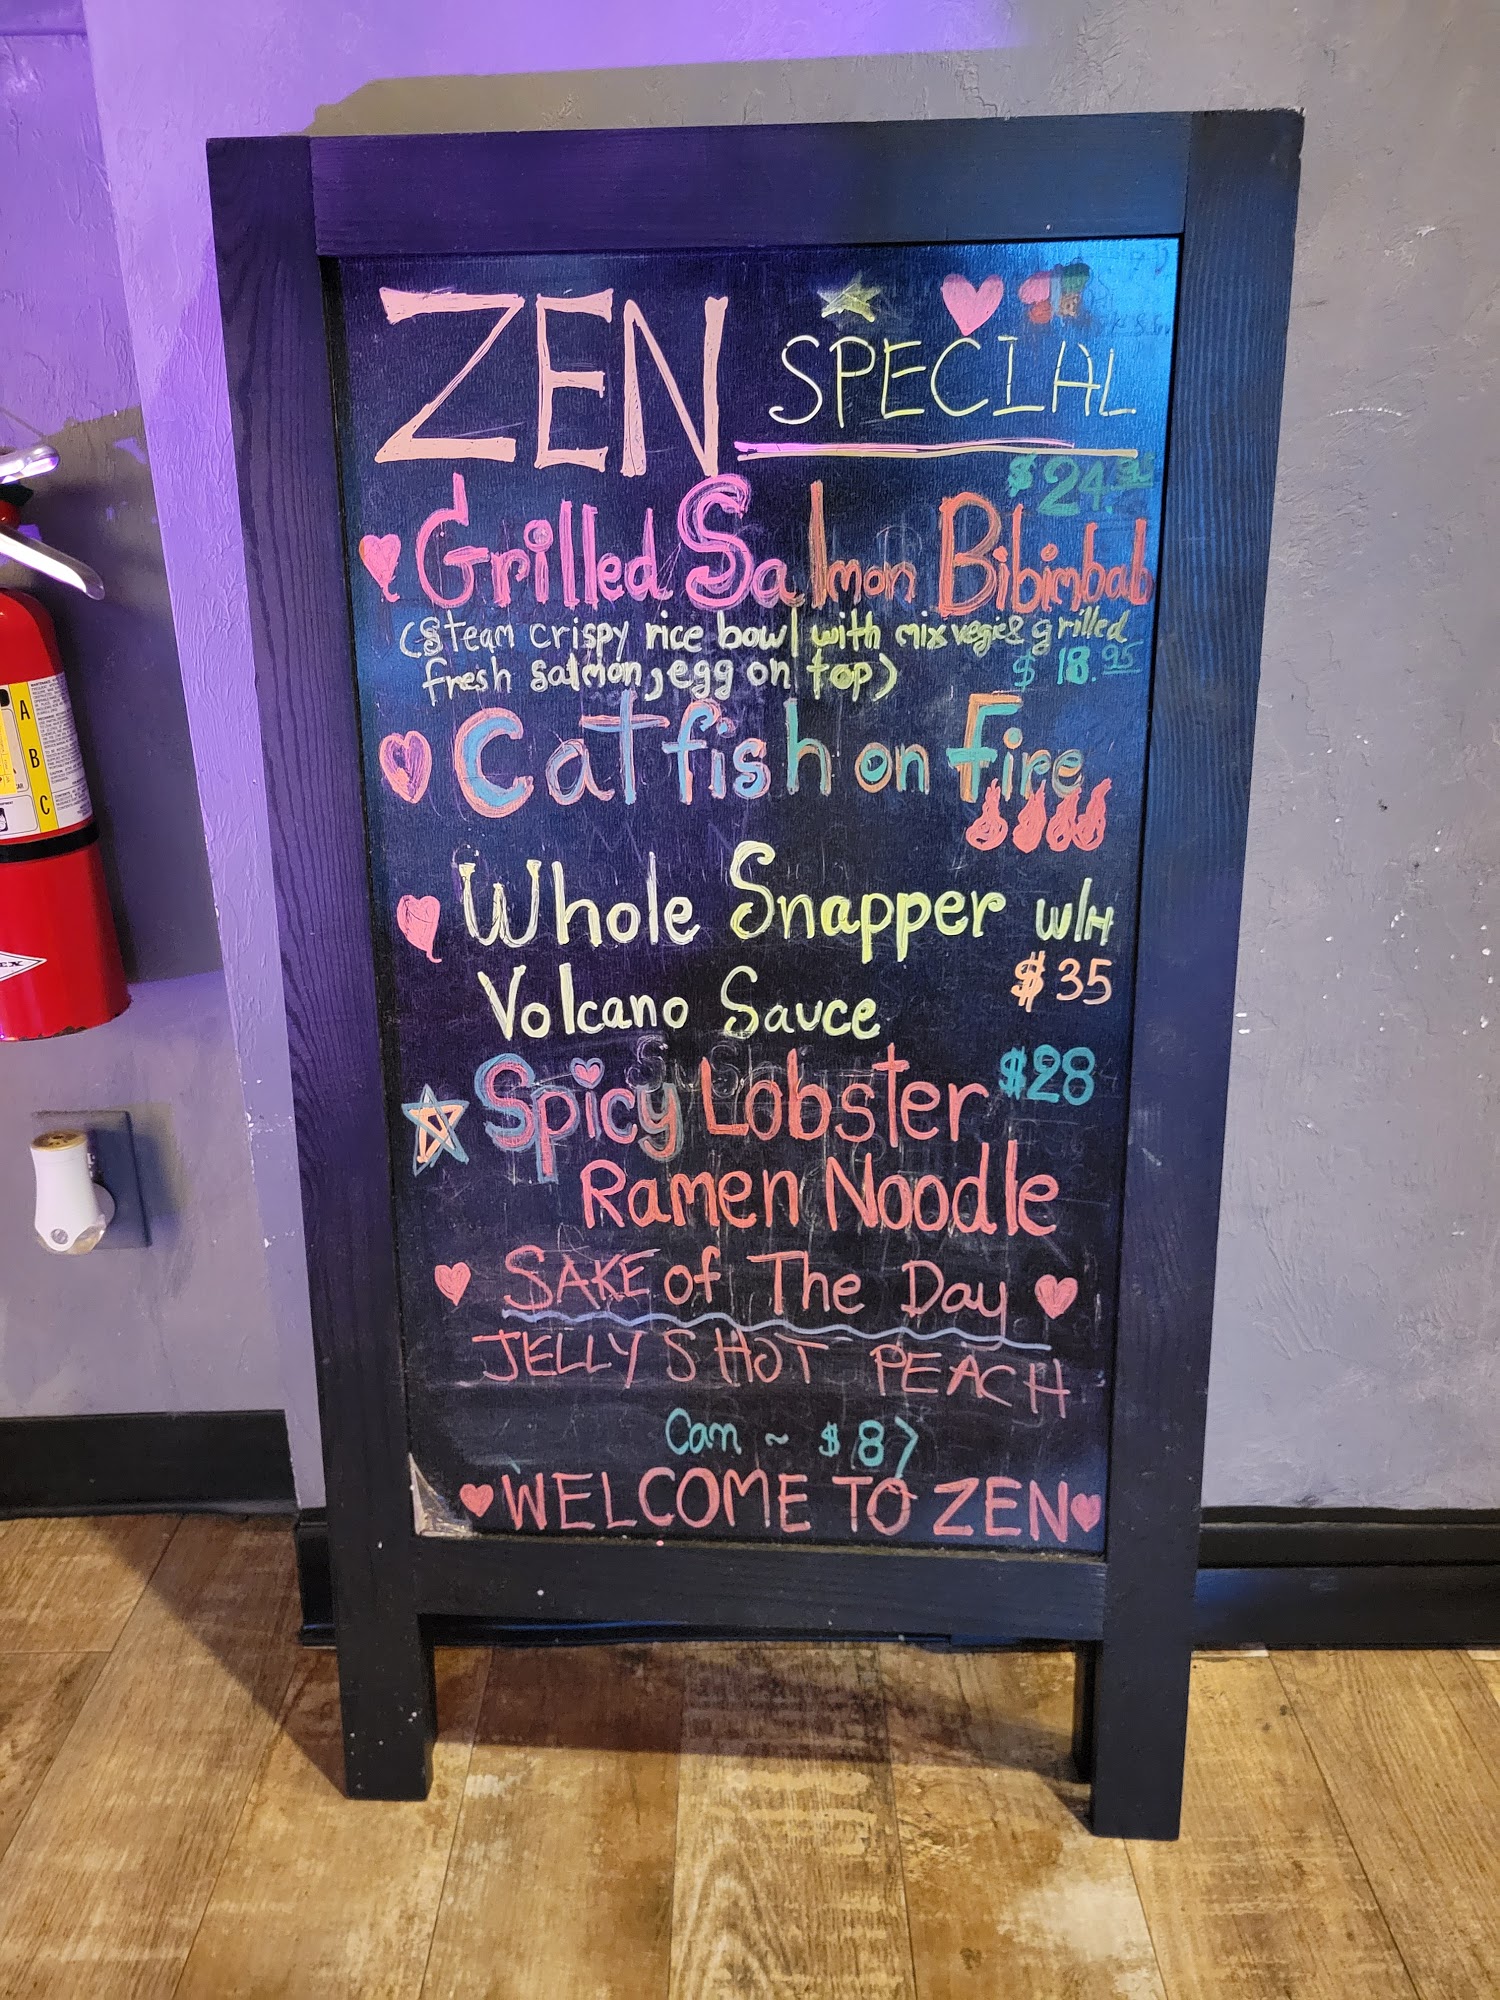 ZEN SPECIAL
$24.95
Grilled Salmon Bibimbab
(Steam crispy rice bowl with mix vegie & grilled
fresh salmon, egg on top)
$18.95
Catfish on Fire
Whole Snapper W/H
Volcano Sauce $35
Spicy Lobster $28
Ramen Noodle
SAKE of The Day
JELLY SHOT PEACH
Can ~ $8
WELCOME TO ZEN
A
B
C